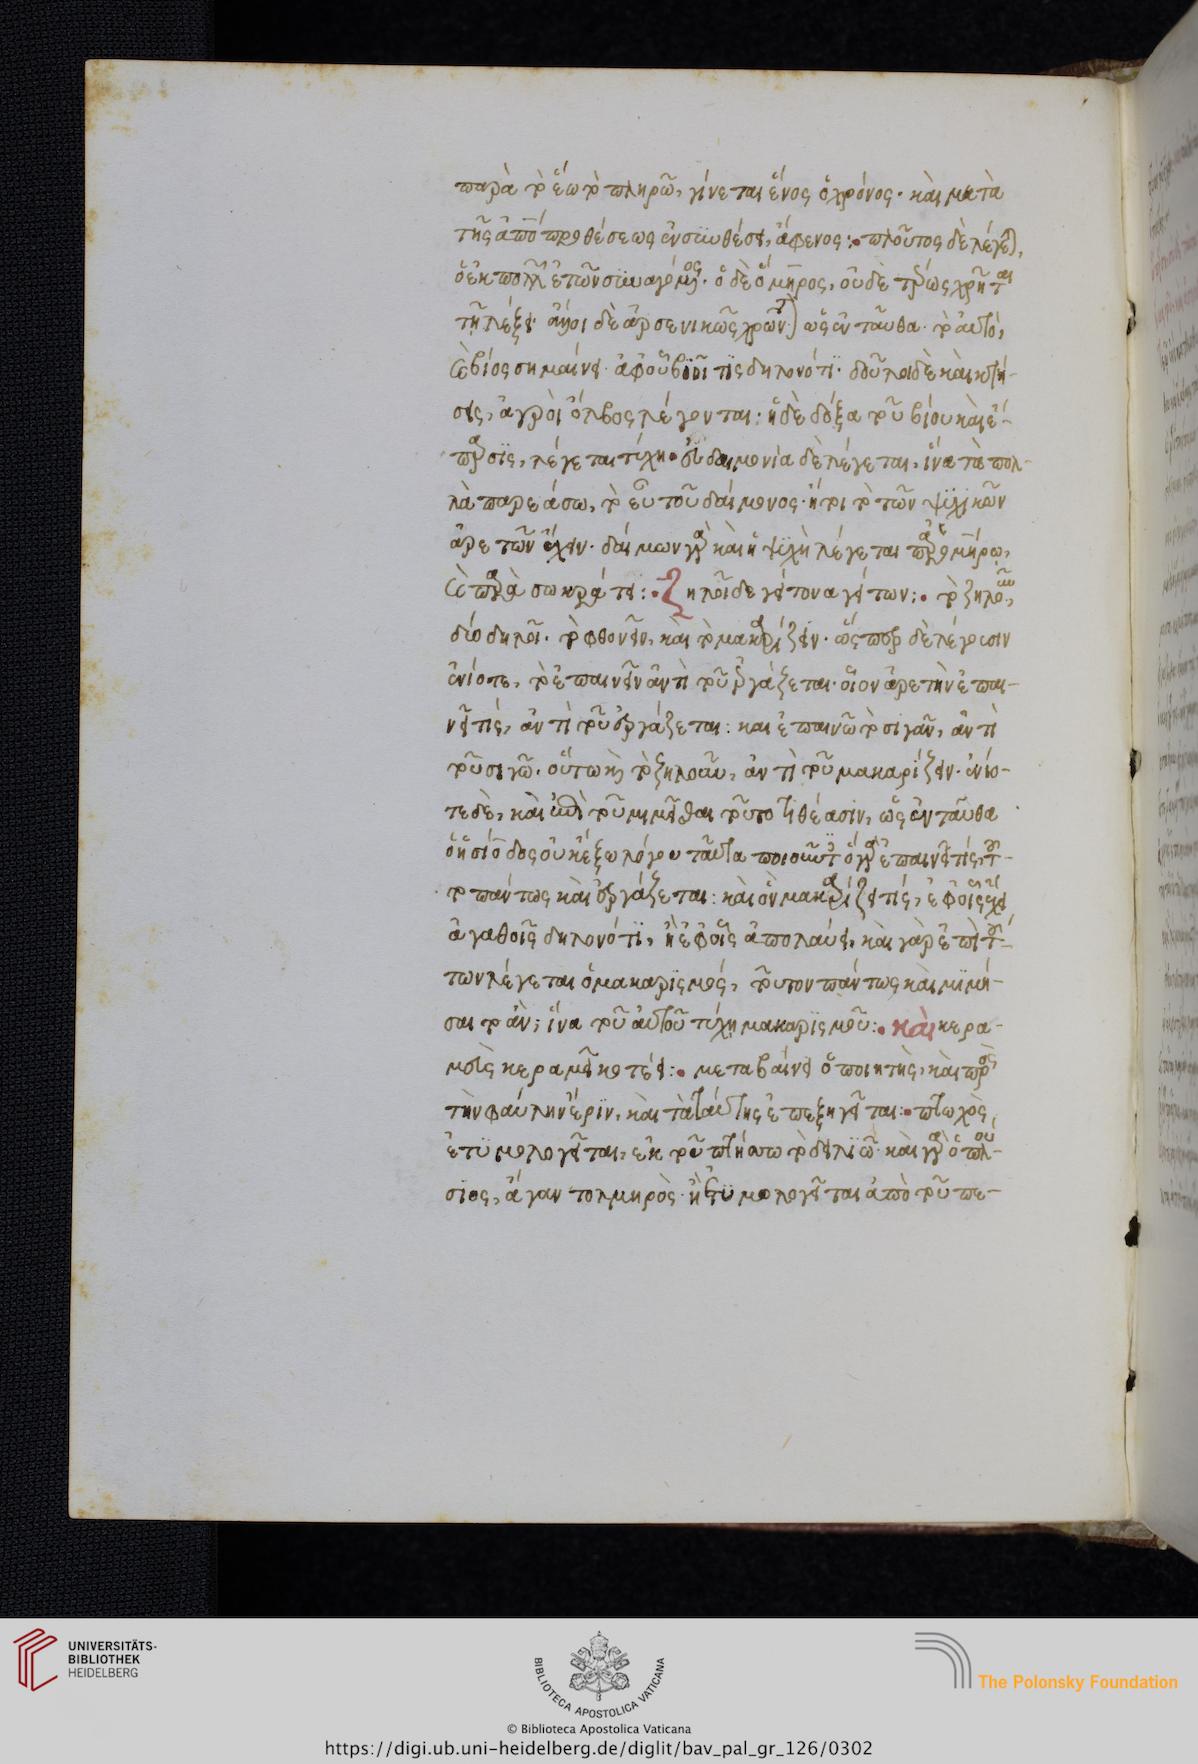 παρὰ τὸ ἕω τὸ πληρῶ, γίνεται ἕνος ὁ χρόνος· καὶ μετὰ
τῆς ἀπὸ προθέσεως ἐν συνθέσει, ἄφενος: πλοῦτος δὲ λέγεται,
ὁ ἐκ πολλῶν ἐτῶν συναγόμενος· ὁ δὲ ὅμηρος, οὐδετέρως χρῆται
τῇ λέξει· ἄλλοι δὲ ἀρσενικῶς χρῶνται ὡς ἐνταῦθα· τὸ αὐτὸ,
καὶ βίος σημαίνει· ἀφ' οὗ βιοῖ τις δηλονότι· δοῦλοι δὲ καὶ κτή-
σεις, ἀγροὶ ὄλβος λέγονται: ἡ δὲ δόξα τοῦ βίου καὶ ἐ-
παρσις, λέγεται τύχη· εὐδαιμονία δὲ λέγεται, ἵνα τὰ πολ-
λὰ παρεάσω, τὸ εὖ τοῦ δαίμονος· ἤτοι τὸ τῶν ψυχικῶν
ἀρετῶν ἔχειν· δαίμων γὰρ καὶ ἡ ψυχὴ λέγεται παρ' ὁμήρω,
καὶ παρὰ σωκράτει: ζηλοῖ δε γείτονα γείτων: τὸ ζηλοῦν,
δύο δηλοῖ· τὸ φθονεῖν, καὶ τὸ μακαρίζειν· ὥσπερ δὲ λέγουσιν
ἐνίοτε, τὸ ἐπαινεῖν ἀντὶ τοῦ ἐργάζεται· οἷον ἀρετὴν ἐπαι-
νεῖ τίς, ἀντὶ τοῦ ἐργάζεται: καὶ ἐπαινῶ τὸ σιγᾶν, ἀντὶ
τοῦ σιγῶ· οὕτω καὶ τὸ ζηλοῦν, ἀντὶ τοῦ μακαρίζειν· ἐνίο-
τε δὲ, καὶ ἀντὶ τοῦ μιμεῖσθαι τοῦτο τιθέασιν, ὡς ἐνταῦθα
ὁ ἡσίοδος οὐκ ἔξω λόγου ταῦτα ποιοῦντες· ὃ γὰρ ἐπαινεῖ τίς, τοῦ-
το πάντως καὶ ἐργάζεται: καὶ ὃν μακαρίζει τίς, ἐφ' οἷς ἔχει
ἀγαθοῖς δηλονότι, ἢ ἐφ' οἷς ἀπολαύει, καὶ γὰρ ἐπὶ τού-
των λέγεται ὁ μακαρισμός, τοῦτον πάντως καὶ μιμή-
σαιτο ἂν; ἵνα τοῦ αὐτοῦ τύχη μακαρισμοῦ: καὶ κερα-
μεὺς κεραμεῖ κοτέει: μεταβαίνει ὁ ποιητὴς, καὶ πρὸς
τὴν φαύλην ἔριν, καὶ τὰ ταύτης ἐπεξηγεῖται: πτωχὸς
ἐτυμολογεῖται, ἐκ τοῦ πτήσσω τὸ δειλιῶ· καὶ γὰρ ὁ πλού-
σιος, ἄγαν τολμηρὸς· ἢ ἐτυμολογεῖται ἀπὸ τοῦ πε-
UNIVERSITÄTS-
BIBLIOTHEK
HEIDELBERG
BIBLIOTECA APOSTOLICA VATICANA
The Polonsky Foundation
© Biblioteca Apostolica Vaticana
https://digi.ub.uni-heidelberg.de/diglit/bav_pal_gr_126/0302